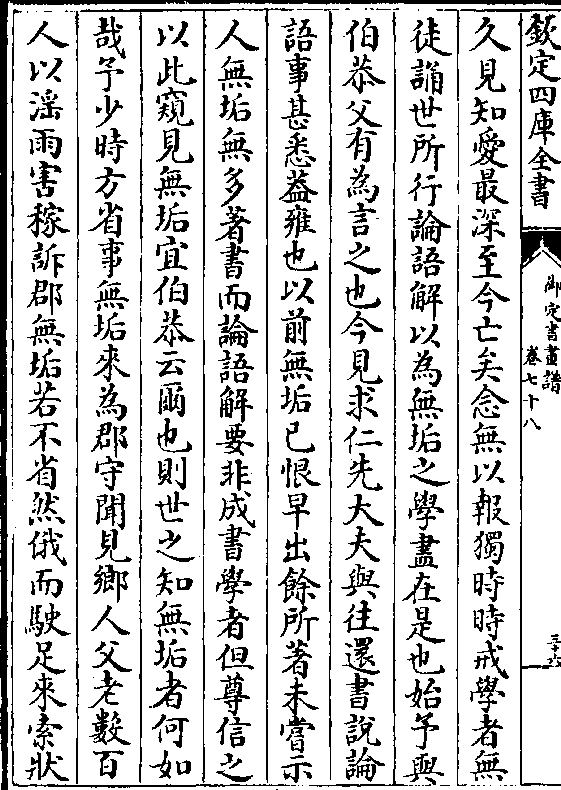 欽定四庫全書
御定書畫譜
卷七十八
三十六
久見知愛最深至今亡矣念無以報獨時時戒學者無
徒誦世所行論語解以為無垢之學盡在是也始予與
伯恭父有為言之也今見求仁先大夫與往還書説論
語事甚悉葢雍也以前無垢已恨早出餘所著未嘗示
人無垢無多著書而論語解要非成書學者但尊信之
以此窺見無垢宜伯恭云爾也則世之知無垢者何如
哉予少時方省事無垢來為郡守聞見鄉人父老數百
人以滛雨害稼訴郡無垢若不省然俄而駛足來索狀